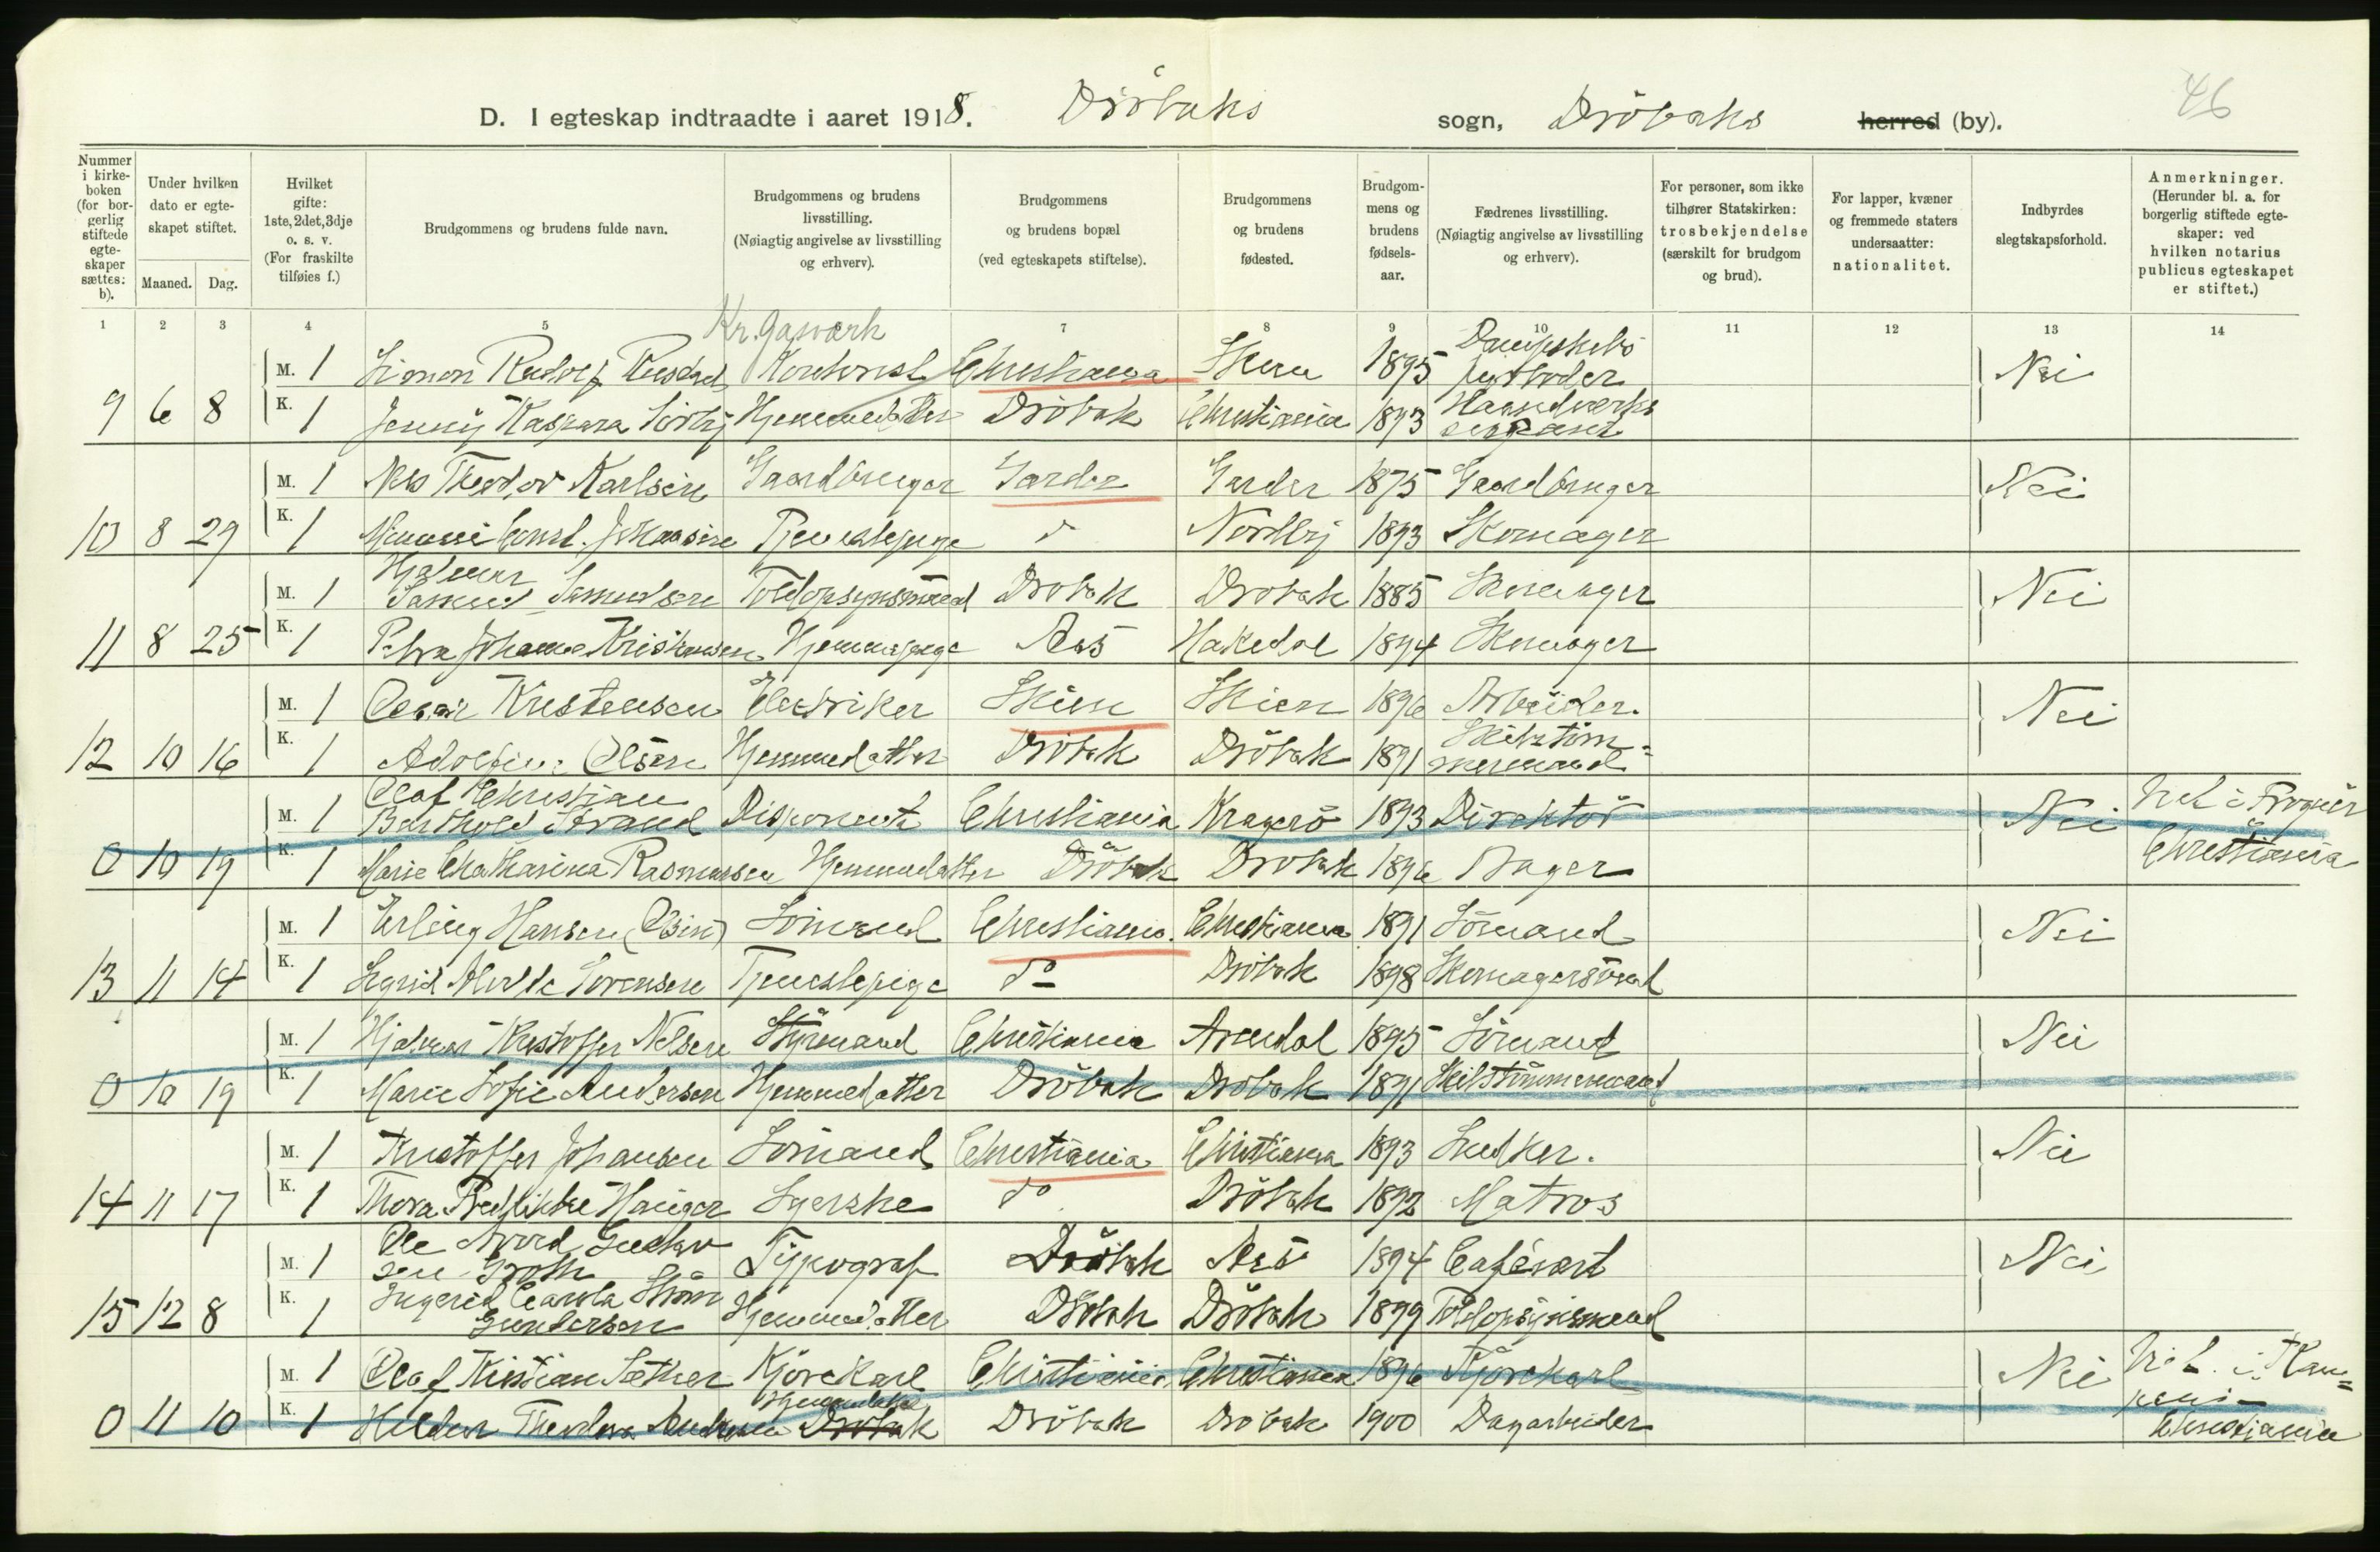 46
D. I egteskap indtraadte i aaret 1918. Dröbaks sogn, Dröbaks herred (by).
Nummer i kirkeboken (for borgerlig stiftede egteskaper sættes: b).
Under hvilken dato er egteskapet stiftet.
Maaned. Dag.
Hvilket gifte: 1ste, 2det, 3dje o. s. v. (For fraskilte tilføies f.)
Brudgommens og brudens fulde navn.
Brudgommens og brudens livsstilling. (Nøiagtig angivelse av livsstilling og erhverv).
Brudgommens og brudens bopæl (ved egteskapets stiftelse).
Brudgommens og brudens fødested.
Brudgommens og brudens fødselsaar.
Fædrenes livsstilling. (Nøiagtig angivelse av livsstilling og erhverv).
For personer, som ikke tilhører Statskirken: trosbekjendelse (særskilt for brudgom og brud).
For lapper, kvæner og fremmede staters undersaatter: nationalitet.
Indbyrdes slegtskapsforhold.
Anmerkninger. (Herunder bl. a. for borgerlig stiftede egteskaper: ved hvilken notarius publicus egteskapet er stiftet.)
1 2 3 4 5 7 8 9 10 11 12 13 14
Kr. Gasværk
M. 1 Simon Rudolf Kontorist Christiania 1895 Dampskibs Nei
9 6 8 K. 1 Jenny Kaspara Sörby Hjemmedatter Dröbak Christiania 1893 Haandverks
M. 1 Nils Theodor Karlsen Gaardbruger Garder Garder 1875 Gaardbruger Nei
10 8 29 K. 1 Johansen Tjenestepige Nordby 1893 Skomager
Hjalmar
M. 1 Samuelsen Toldopsynsmand Drobak Drobak 1885 Skomager Nei
11 8 25 K. 1 Petra Johanne Kristiansen Hjemmepige Aas Hakedal 1894 Skomager
M. 1 Kristensen Elektriker Skien Skien 1896 Arbeider. Nei
12 10 16 K. 1 Adolfine Olsen Hjemmedatter Dröbak Dröbak 1891 Skibstömmermand
Olaf Christian
M. 1 Barthold Strand Disponent Christiania Kragerö 1893 Direktör Nei Viet i Frogner
0 10 19 K. 1 Marie Chatharina Rasmussen Hjemmedatter Dröbak Drobak 1896 Bager Christiania
M. 1 Erling Hansen Sömand Christiania. Christiania 1891 Sömand Nei
13 11 14 K. 1 Sigrid Sorensen Tjenestepige do Dröbak 1898
M. 1 Hjalmar Kristoffer Nilsen Styrmand Christiania Arendal 1895 Sömand Nei
0 10 19 K. 1 Marie Sofie Andersen Hjemmedatter Dröbak Drobak 1891 Skibstömmermand
M. 1 Kristoffer Johansen Sömand Christiania Christiania 1893 Snedker. Nei
14 11 17 K. 1 Thora Fredrikke Hauger Syerske do Dröbak 1892 Matros
Ole Gustav
M. 1 Typograf Dröbak Aas 1894 Cafévert Nei
Ingerid Carola Ström
15 12 8 K. 1 Gundersen Hjemmedatter Dröbak Dröbak 1899 Toldopsynsmand
M. 1 Olaf Kristian Sæther Kjörekarl Christiania Christiania 1896 Kjörekarl Nei Viet i Kam=
Hjemmedatter pens
0 11 10 K. 1 Theodora Andresen Drobak Dröbak Drobak 1900 Dagarbeider Christiania